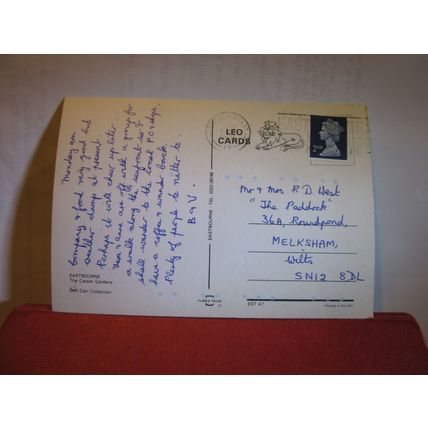 Monday am
Company & food very good but
weather damp at present
Perhaps it will clear up later.
Mon & are off with a group for
a walk along the seafront &
shall wander to the local P.O & shops,
have a coffee & wander back.
Plenty of people to natter to.
B & V.
EASTBOURNE
The Carpet Gardens
Carr Collection
EASTBOURNE TEL.
LEO
CARDS
2ND
Mr & Mrs R D West
"The Paddock"
36A, Roundpond,
MELKSHAM,
Wilts
SN12 8DL
EST 47